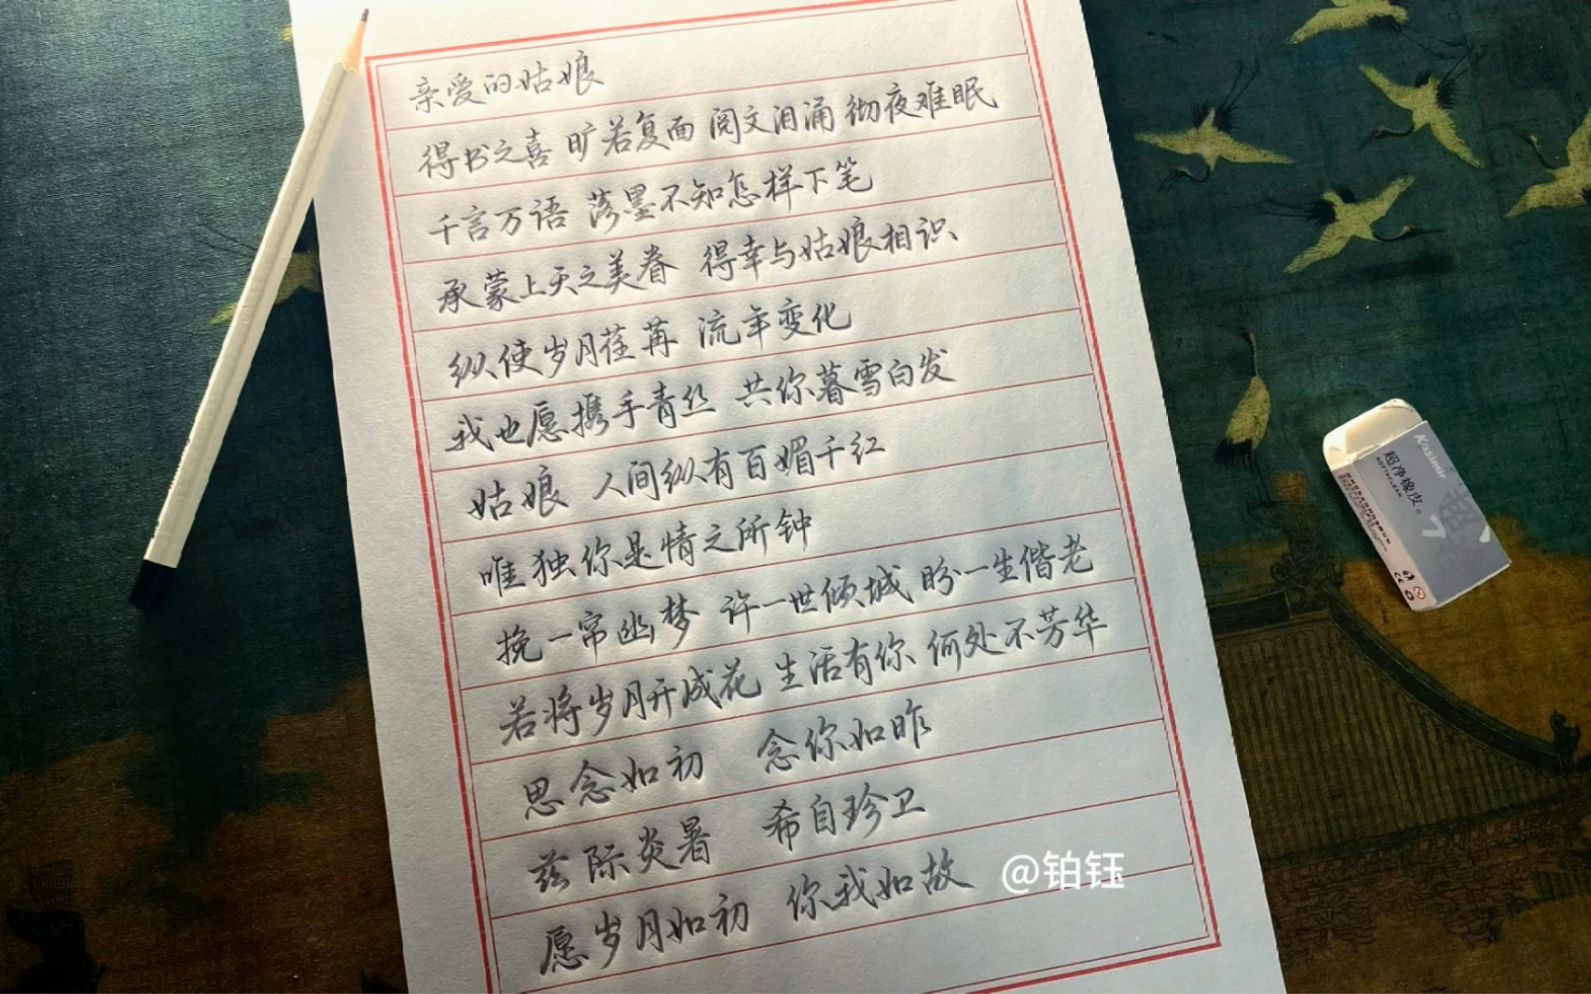 亲爱的姑娘
得书之喜 旷若复面 阅文泪涌 彻夜难眠
千言万语 落墨不知怎样下笔
承蒙上天之美眷 得幸与姑娘相识
纵使岁月荏苒 流年变化
我也愿携手青丝 共你暮雪白发
姑娘 人间纵有百媚千红
唯独你是情之所钟
挽一帘幽梦 许一世倾城 盼一生偕老
若将岁月开成花 生活有你 何处不芳华
思念如初 念你如昨
兹际炎暑 希自珍卫
愿岁月如初 你我如故
@铂钰
Kasimir
超净橡皮。